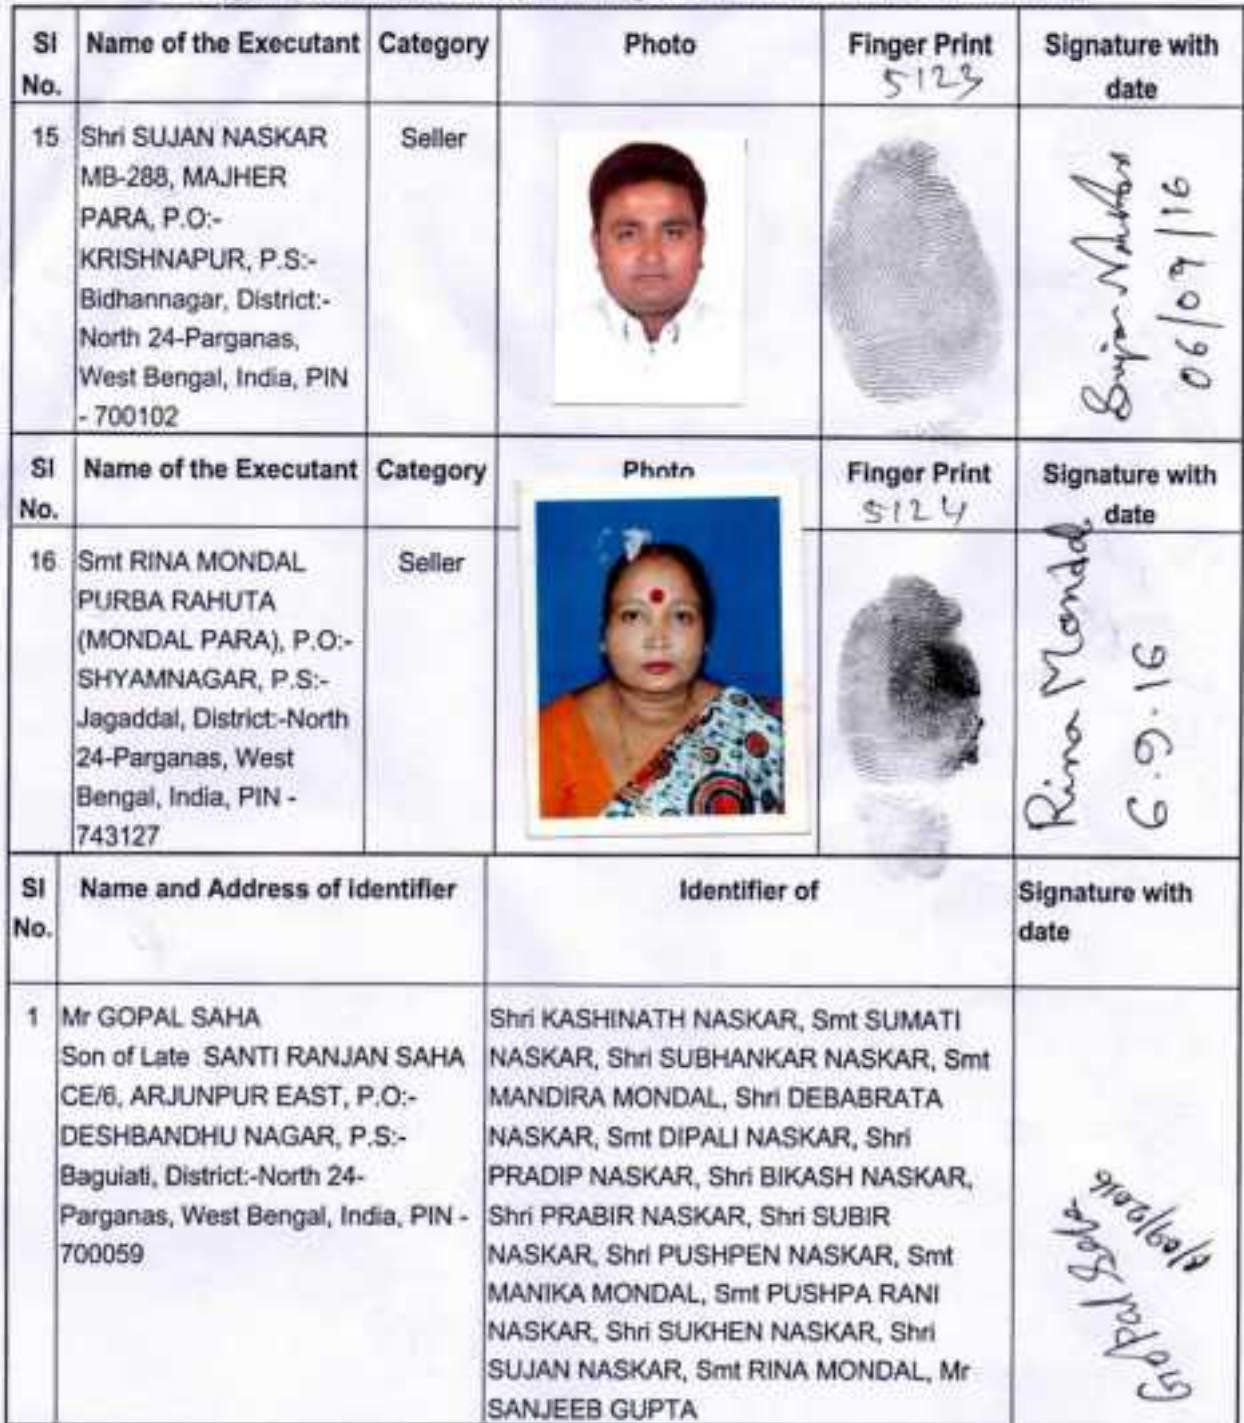 SI No. Name of the Executant Category Photo Finger Print Signature with date
5123
15 Shri SUJAN NASKAR Seller
MB-288, MAJHER
PARA, P.O:-
KRISHNAPUR, P.S:-
Bidhannagar, District:-
North 24-Parganas,
West Bengal, India, PIN
- 700102
Sujan Naskar
06/09/16
SI No. Name of the Executant Category Photo Finger Print Signature with date
5124
16 Smt RINA MONDAL Seller
PURBA RAHUTA
(MONDAL PARA), P.O:-
SHYAMNAGAR, P.S:-
Jagaddal, District:-North
24-Parganas, West
Bengal, India, PIN -
743127
Rina Mondal
6.9.16
SI No. Name and Address of identifier Identifier of Signature with date
1 Mr GOPAL SAHA
Son of Late SANTI RANJAN SAHA
CE/6, ARJUNPUR EAST, P.O:-
DESHBANDHU NAGAR, P.S:-
Baguiati, District:-North 24-
Parganas, West Bengal, India, PIN -
700059
Shri KASHINATH NASKAR, Smt SUMATI
NASKAR, Shri SUBHANKAR NASKAR, Smt
MANDIRA MONDAL, Shri DEBABRATA
NASKAR, Smt DIPALI NASKAR, Shri
PRADIP NASKAR, Shri BIKASH NASKAR,
Shri PRABIR NASKAR, Shri SUBIR
NASKAR, Shri PUSHPEN NASKAR, Smt
MANIKA MONDAL, Smt PUSHPA RANI
NASKAR, Shri SUKHEN NASKAR, Shri
SUJAN NASKAR, Smt RINA MONDAL, Mr
SANJEEB GUPTA
Gopal Saha